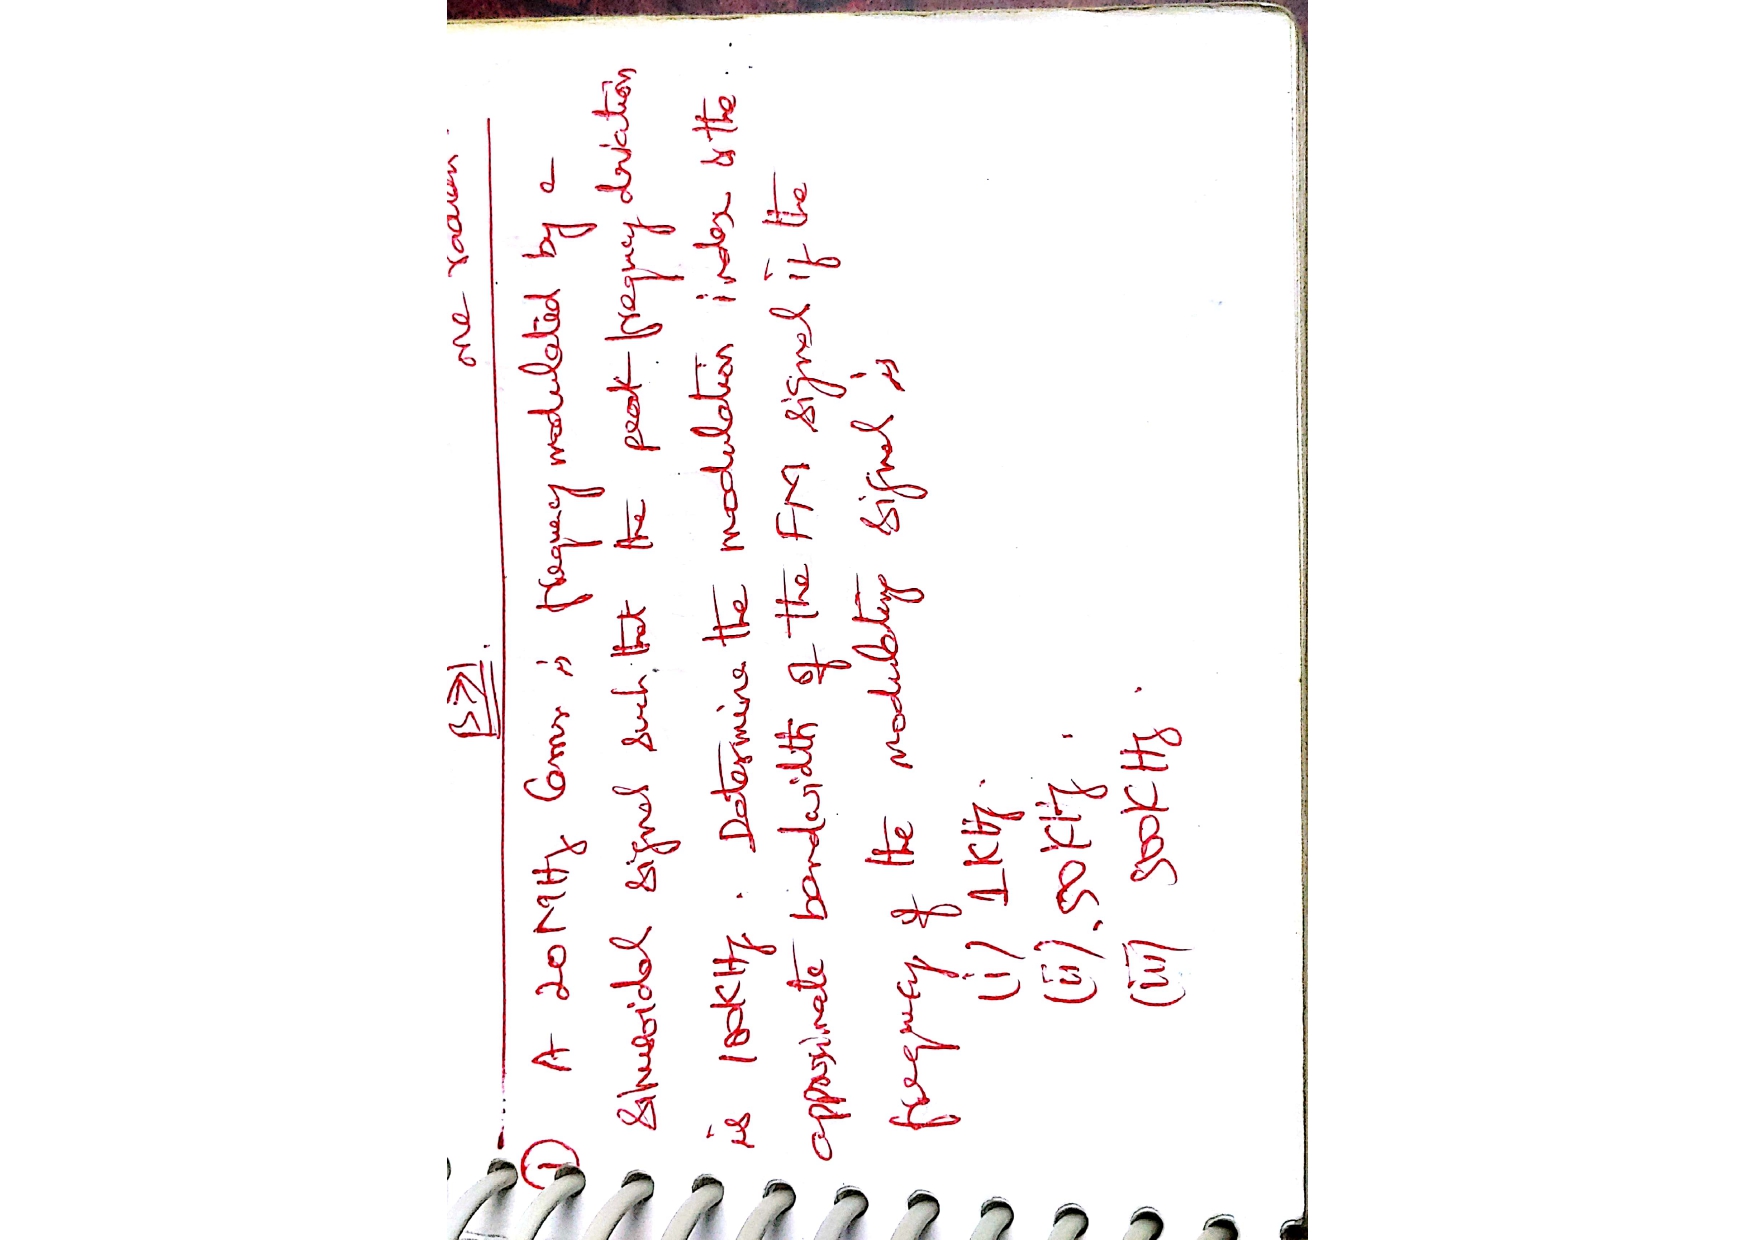 one
β>>1.
① A 20MHz Carrier is frequency modulated by a
Sinusoidal signal such that the peak frequency deviation
is 100KHz. Determine the modulation index & the
approximate bandwidth of the FM signal if the
frequency of the modulating signal is
(i) 1KHz.
(ii) 50KHz.
(iii) 500KHz.